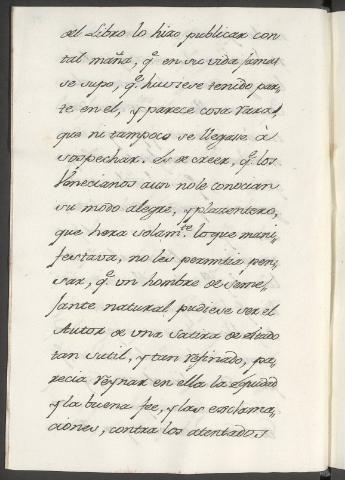 del Libro lo hizo publicar con
tal maña, q.e en su vida jamas
se supo, q.e huviese tenido par-
te en el, y parece cosa rara,
que ni tampoco se llegase à
sospechar. Es de creer, q.e los
Venecianos aun no le conocian
su modo alegre, y plazentero,
que hera solam.te lo que mani-
festava, no les permitia pen-
sar, q.e un hombre de seme-
jante natural pudiese ser el
Autor de una Satira de estado
tan sutil, y tan refinado, pa-
recia reynar en ella la equidad
y la buena fee, y las exclama-
ciones, contra los atentados